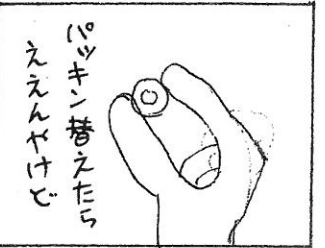 パッキン替えたら
ええんやけど